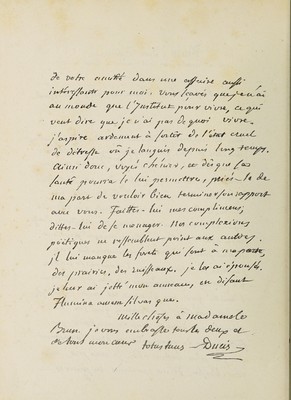 de votre amitié dans une affaire aussi
intéressante pour moi. vous savés que je n'ai
au monde que l'Institut pour vivre, ce qui
veut dire que je n'ai pas de quoi vivre.
j'aspire ardement à sortir de l'état cruel
de détresse où je languis depuis longtemps.
ainsi donc, voyés chénier, et dès que sa
santé pourra le lui permettre, priés-le de
ma part de vouloir bien terminer son rapport
avec vous. Faittes-lui mes complimens,
dittes-lui de se menager. Nos complexions
poëtiques ne ressemblent point aux autres.
il lui manque les forêts qui sont à ma porte,
des prairies, des ruisseaux. je les ai épousés,
je leur ai jetté mon anneau, en disant
Flumina amem silvas que.
mille choses à madame le
Brun. je vous embrasse tous les deux et
de tout mon cœur totus tuus Ducis